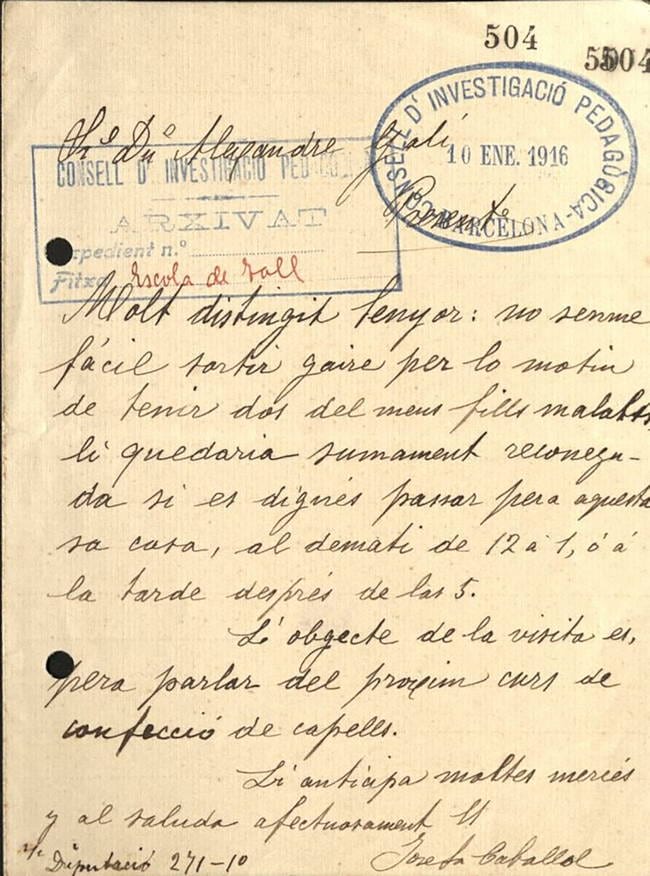 504
504
CONSELL D'INVESTIGACIÓ PEDAGÒGICA
10 ENE. 1916
BARCELONA
Sr. Dn. Alexandre Galí
Present
CONSELL D'INVESTIGACIÓ PEDAGÒGICA
ARXIVAT
Expedient n.º
Fitxa Escola de Tall
Molt distingit senyor: no senme
fácil sortir gaire per lo motiu
de tenir dos del meus fills malalts,
li quedaria sumament reconegu-
da si es dignés passar pera aquesta
sa casa, al demati de 12 á 1, ó á
la tarde després de las 5.
L'obgecte de la visita es,
pera parlar del proxim curs de
confecció de capells.
Li anticipa moltes mercés
y al saluda afectuosament
Josefa Caballol
Diputació 271-10